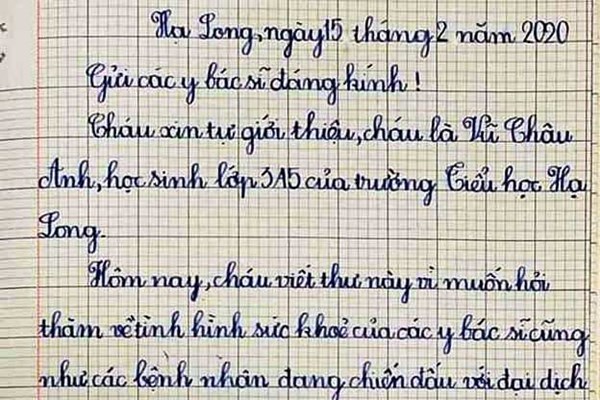 Hạ Long, ngày 15 tháng 2 năm 2020
Gửi các y bác sĩ đáng kính!
Cháu xin tự giới thiệu, cháu là Vũ Châu
Anh, học sinh lớp 3A5 của trường Tiểu học Hạ
Long.
Hôm nay, cháu viết thư này vì muốn hỏi
thăm về tình hình sức khoẻ của các y bác sĩ cũng
như các bệnh nhân đang chiến đấu với đại dịch